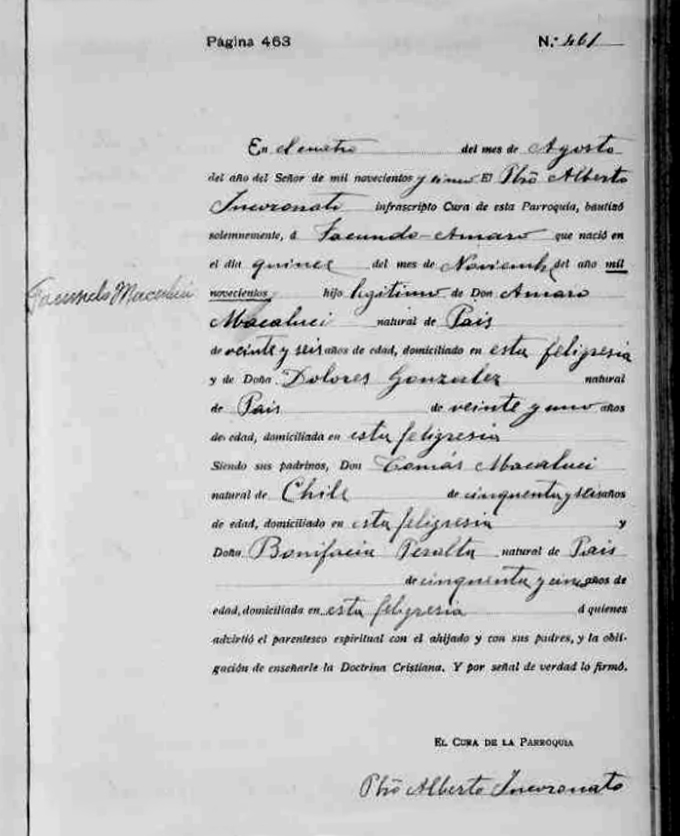 Página 463 N.º 461
En el cuatro del mes de Agosto
del año del Señor de mil novecientos y cinco El Pbro Alberto
Incoronato infrascripto Cura de esta Parroquia, bautizó
solemnemente, á Facundo Amaro que nació en
el día quince del mes de Noviembre del año mil
novecientos hijo legitimo de Don Amaro
Facundo Macaluci
Macaluci natural de Pais
de veinte y seis años de edad, domiciliado en esta feligresia
y de Doña Dolores Gonzalez natural
de Pais de veinte y uno años
de edad, domiciliada en esta feligresia
Siendo sus padrinos, Don Tomás Macaluci
natural de Chile de cinquenta y seis años
de edad, domiciliado en esta feligresia y
Doña Bonifacia Peralta natural de Pais
de cinquenta y cinco años de
edad, domiciliada en esta feligresia á quienes
advirtió el parentesco espiritual con el ahijado y con sus padres, y la obli-
gación de enseñarle la Doctrina Cristiana. Y por señal de verdad lo firmó.
EL CURA DE LA PARROQUIA
Pbro Alberto Incoronato